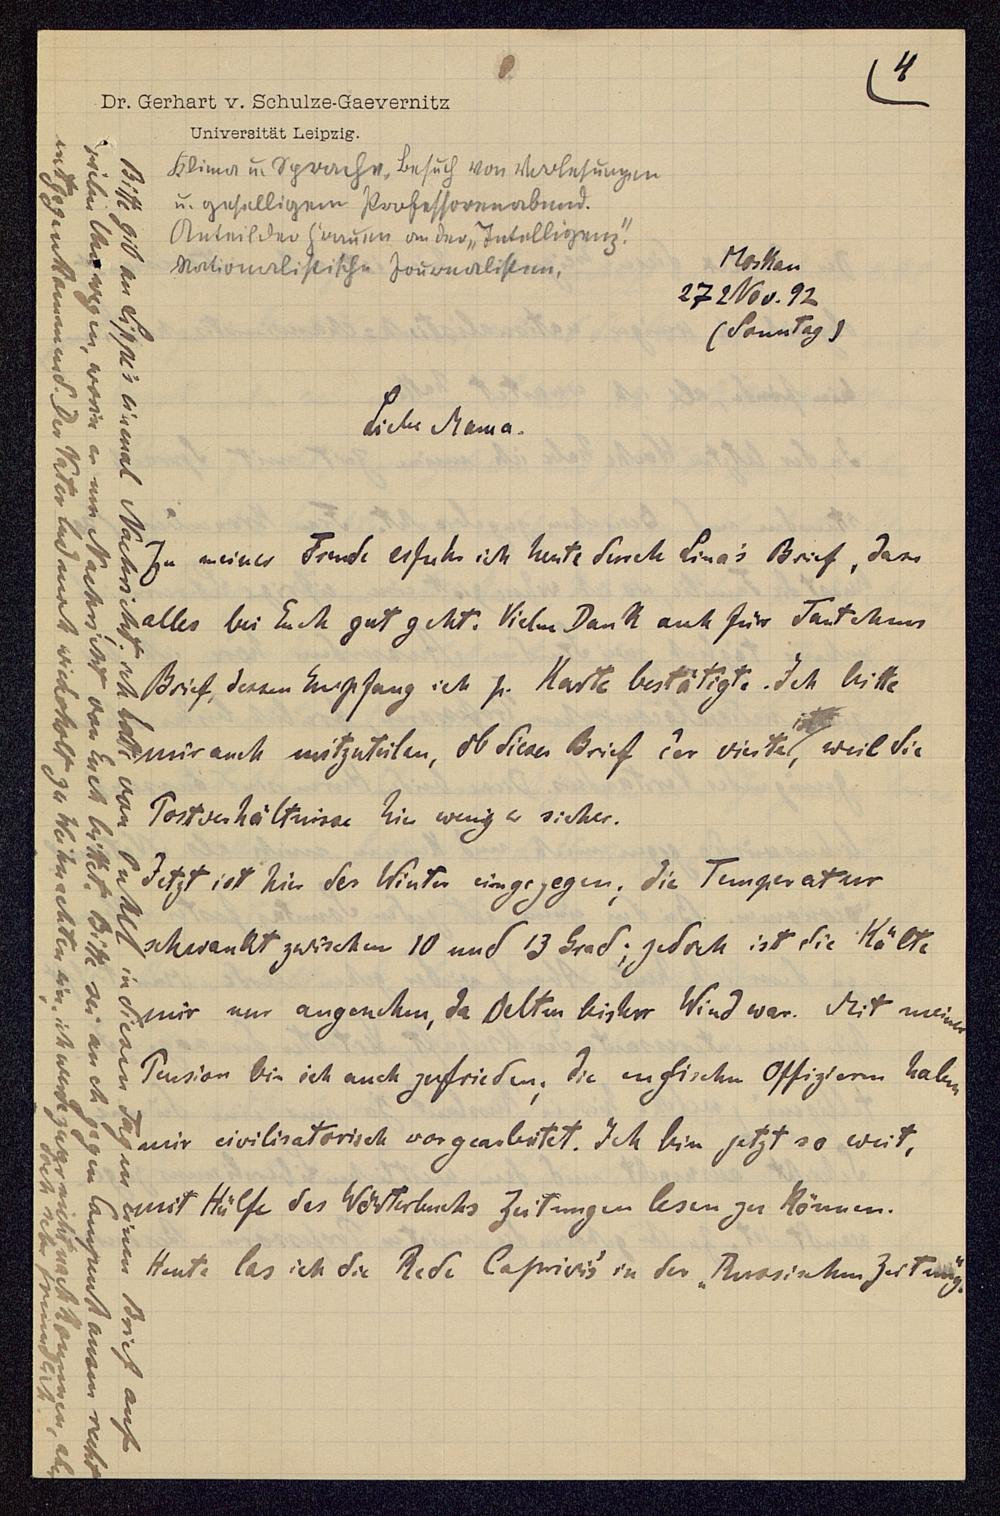 4
Dr. Gerhart v. Schulze-Gaevernitz
Universität Leipzig.
Klima u. Sprache, Besuch von Vorlesungen
u. geselligem Professorenabend.
Anteil der Frauen an der „Intelligenz".
Nationalistische Journalisten.
Moskau
27 Nov. 92
(Sonntag)
Liebe Mama.
Zu meiner Freude erfuhr ich heute durch Lina's Brief, dass
alles bei Euch gut geht. Vielen Dank auch für Tantchens
Brief, dessen Empfang ich p. Karte bestätigte. Ich bitte
mir auch mitzuteilen, ob dieser Brief der vierte ist, weil die
Postverhältnisse hier weniger sicher.
Jetzt ist hier der Winter eingezogen; die Temperatur
schwankt zwischen 10 und 13 Grad; jedoch ist die Kälte
mir nur angenehm, da selten bisher Wind war. Mit meiner
Pension bin ich auch zufrieden; die englischen Offiziere haben
mir civilisatorisch vorgearbeitet. Ich bin jetzt so weit,
mit Hülfe des Wörterbuchs Zeitungen lesen zu können.
Heute las ich die Rede Caprivis' in der „Russischen Zeitung".
Bitte gib an Lippe's einmal Nachricht; ich hatte von in diesen Tagen einen Brief auf
vielen Umwegen, worin er um Nachricht von Euch bittet. Bitte sei auch gegen recht
entgegenkommend. Der Vater lud mich wiederholt zu Weihnachten ein; ich werde zwar nicht nach kommen, aber
doch sehr freundlich.